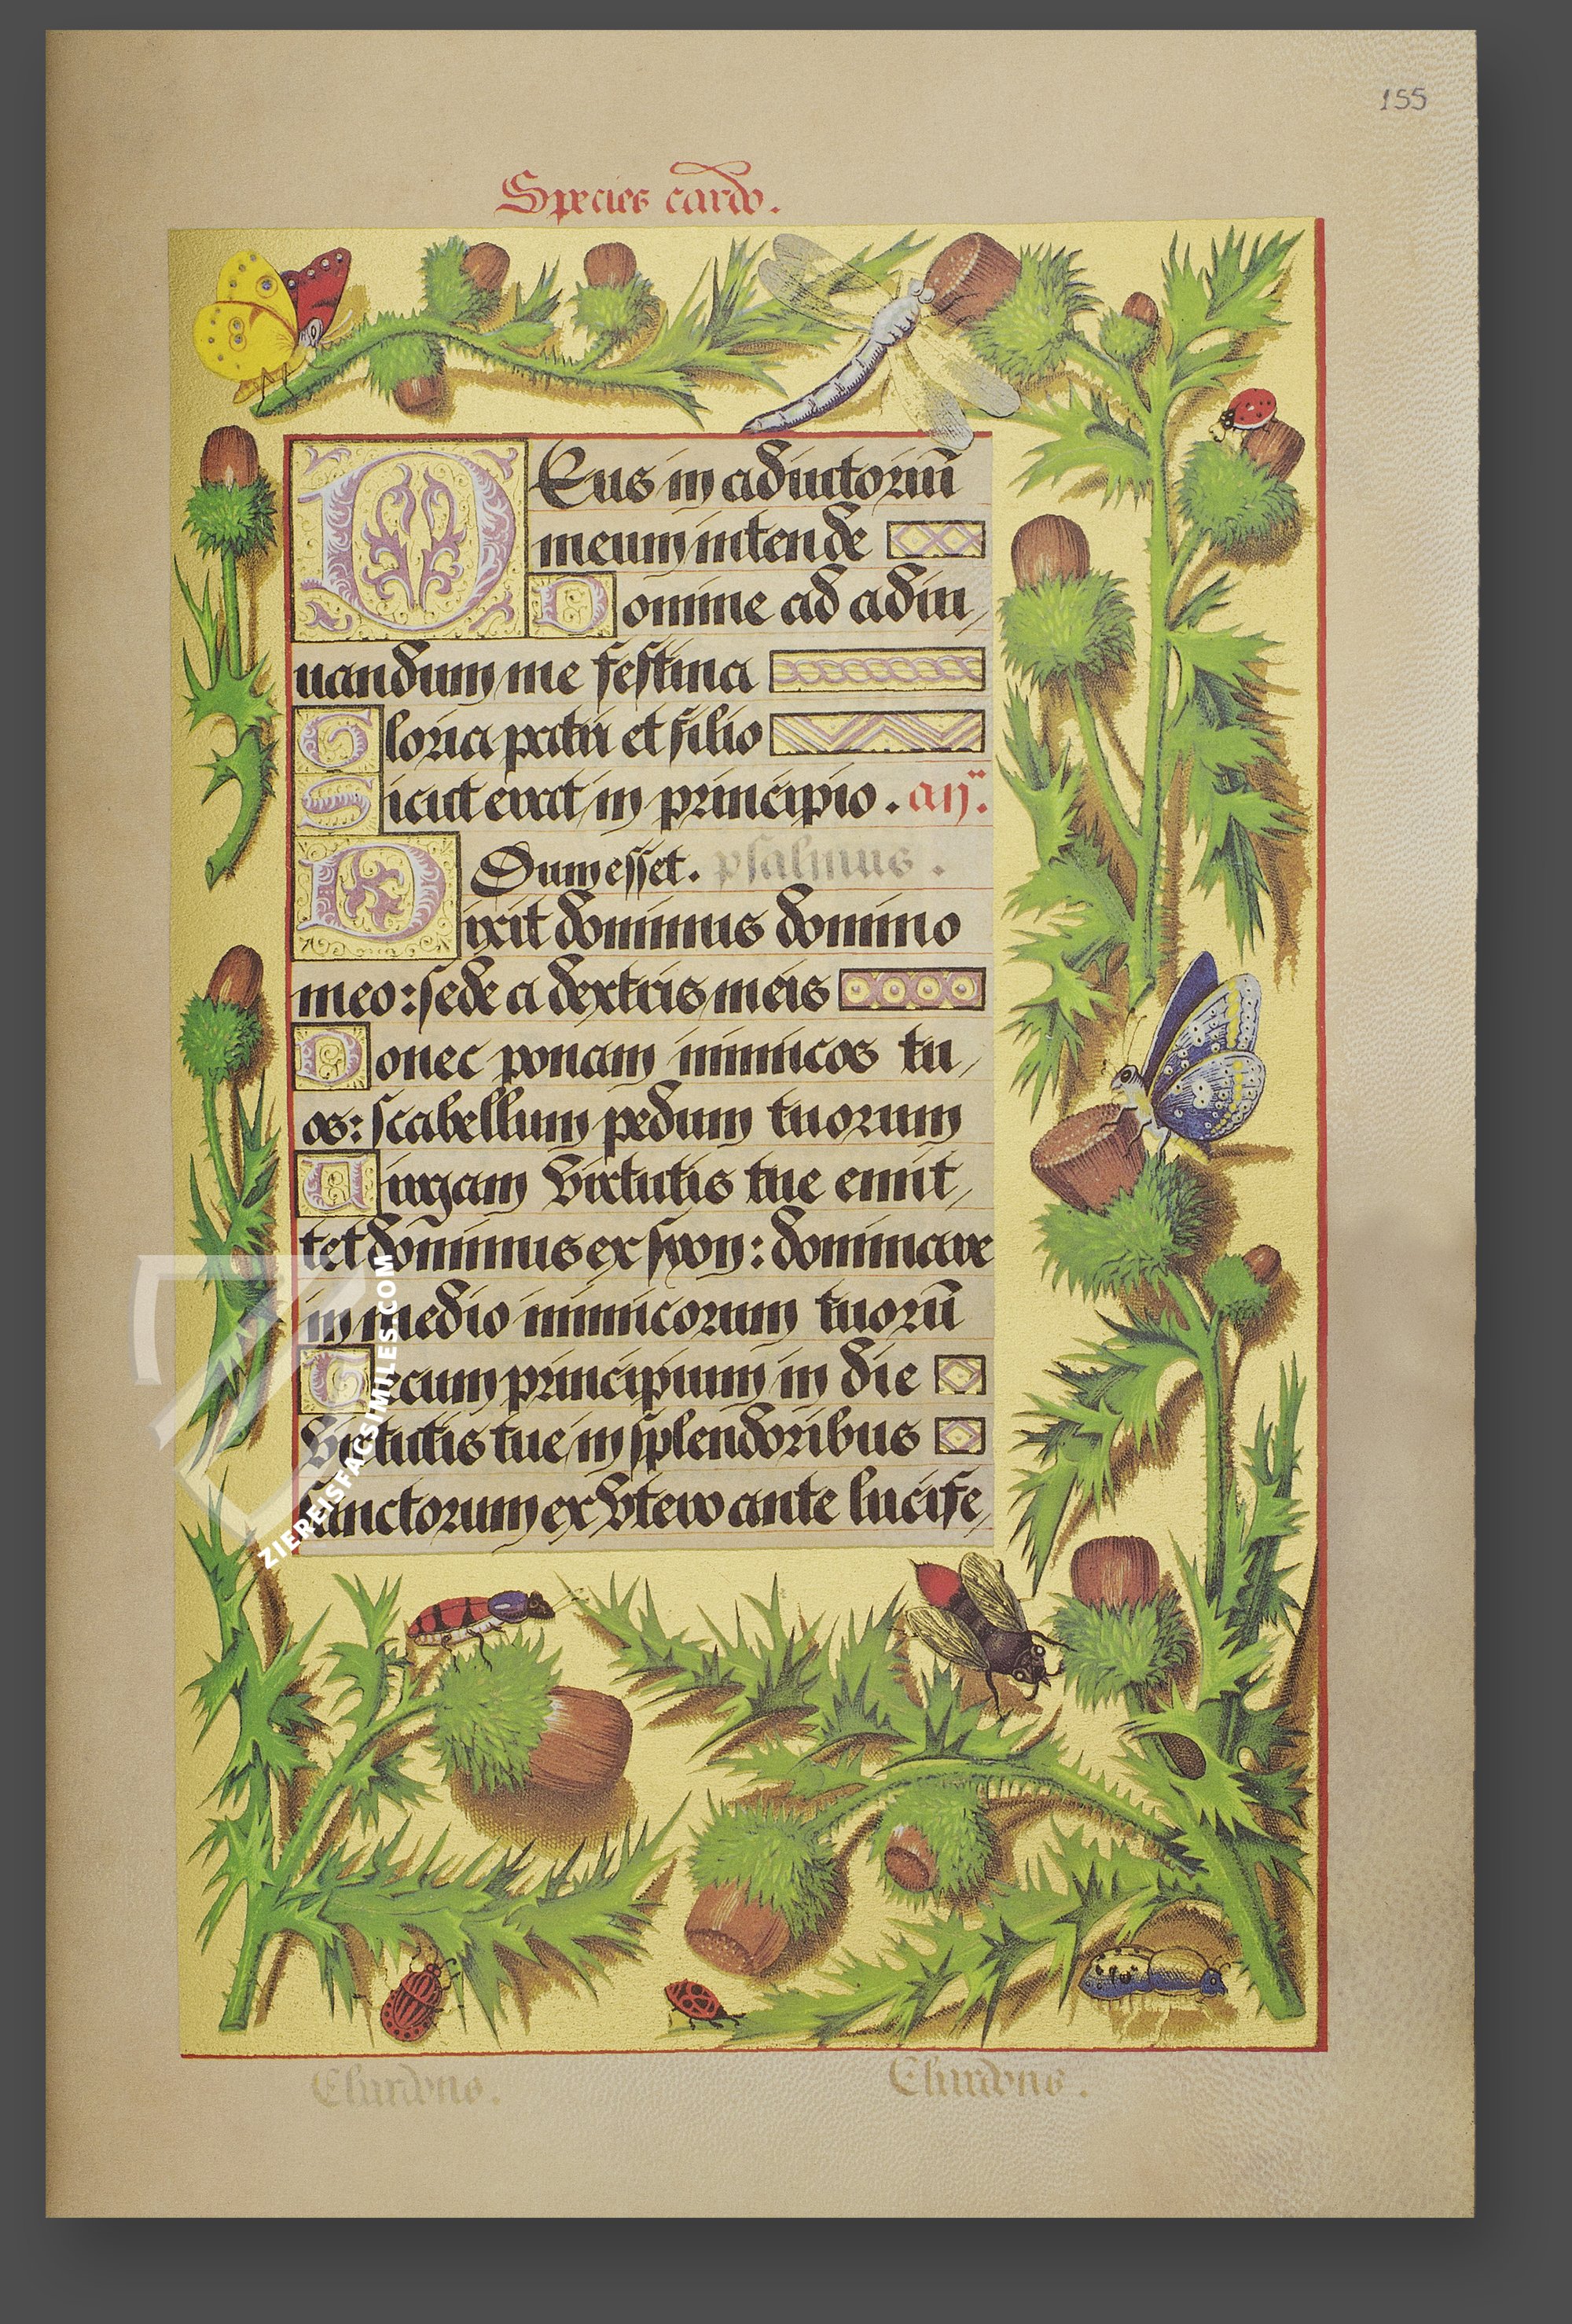 155
Species cardo.
Deus in adiutoriū
meum intende
Domine ad adiu,
uandum me festina
Gloria patri et filio
Sicut erat in principio. añ.
Dum esset. psalmus.
Dixit dominus domino
meo: sede a dextris meis
Donec ponam inimicos tu,
os: scabellum pedum tuorum
Uirgam virtutis tue emit,
tet dominus ex syon: dominare
in medio inimicorum tuorū
Tecum principium in die
virtutis tue in splendoribus
sanctorum ex vtero ante lucife,
ZIEREISFACSIMILES.COM
Chardons.
Chardons.